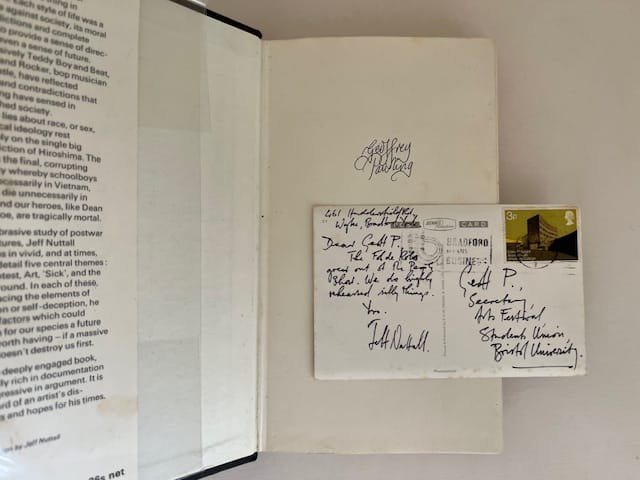 Each style of life was a
against society, its moral
dictions and complete
to provide a sense of direc-
even a sense of future.
sively Teddy Boy and Beat,
and Rocker, bop musician
have reflected
and contradictions that
ng have sensed in
hed society.
lies about race, or sex,
cal ideology rest
ly on the single big
iction of Hiroshima. The
the final, corrupting
y whereby schoolboys
ecessarily in Vietnam,
die unnecessarily in
nd our heroes, like Dean
oe, are tragically mortal.
brasive study of postwar
tures, Jeff Nuttall
s in vivid, and at times,
detail five central themes :
otest, Art, 'Sick', and the
round. In each of these,
acing the elements of
on or self-deception, he
factors which could
n for our species a future
orth having – if a massive
oesn't destroy us first.
deeply engaged book,
ly rich in documentation
gressive in argument. It is
rd of an artist's dis-
s and hopes for his times.
by Jeff Nuttall
net
Geoffrey
CARD
Wyke,
Dear Geoff P.
The
goes out at the
Show. We do highly
rehearsed silly things.
Jeff Nuttall.
BRADFORD
BUSINESS
3p
Geoff P.,
Secretary,
Arts Festival
Students Union,
Bristol University.